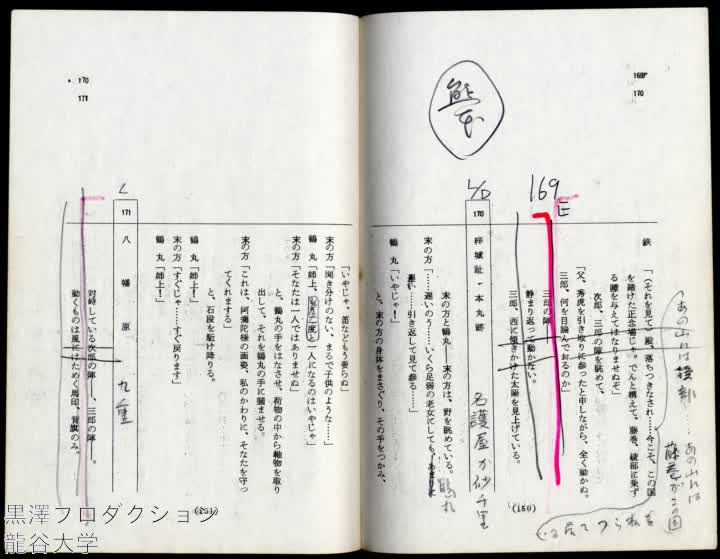 169
170
熊本
169
E
鉄　「(それを見て)殿、落ちつきなされ……今こそ、この国
を賭けた正念場じゃ。でんと構えて、藤巻、綾部に乗ず
る隙を与えてはなりませぬぞ」
次郎、三郎の陣を眺めて、
「父、秀虎を引き取りに参ったと申しながら、全く動かぬ。
三郎、何を目論んでおるのか」
三郎の陣――
静まり返って動かない。
三郎、西に傾きかけた太陽を見上げている。
あの山れは綾部
あの山れは
藤巻がこの国
L/D
170　梓城趾・本丸跡
名護屋か砂千里
末の方と鶴丸――末の方は、野を眺めている。
末の方「……遅いのう……いくら足弱の老女にしても、あまりに
遅い……引き返して見て参る……」
鶴　丸「いやじゃ！」
と、末の方の身体をまさぐり、その手をつかみ、
(150)
170
171
「いやじゃ、笛などもう要らぬ」
末の方「聞き分けのない、まるで子供のような……」
鶴　丸「姉上、もう二度と一人になるのはいやじゃ」
末の方「そなたは一人ではありませぬ」
と、鶴丸の手をはなさせ、荷物の中から軸物を取り
出して、それを鶴丸の手に摑ませる。
末の方「これは、阿彌陀様の画姿、私のかわりに、そなたを守っ
てくれまする」
と、石段を駈け降りる。
鶴　丸「姉上！」
末の方「すぐじゃ……すぐ戻ります」
鶴　丸「姉上！」
L
171　八　幡　原
九重
対峙している次郎の陣――、三郎の陣――。
動くものは風にはためく馬印、背旗のみ。
黒澤プロダクション
龍谷大学